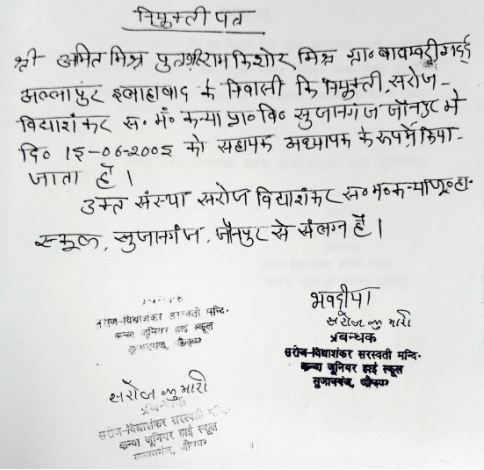 नियुक्ती पत्र
श्री अमित मिश्र पुत्र श्री राम किशोर मिश्र ग्रा० बाघम्बरी गद्दी
अल्लापुर इलाहाबाद के निवासी कि नियुक्ती, सरोज-
विद्याशंकर स० मं० कन्या प्रा० वि० सुजानगंज जौनपुर मे
दि० 15-06-2005 को सहायक अध्यापक के रूप में किया-
जाता हैं।
उक्त संस्था सरोज विद्याशंकर स० म० कन्या जू० हा०
स्कूल, सुजानगंज, जौनपुर से संलग्न हैं।
भवदीया
सरोज कुमारी
प्रबन्धक
सरोज-विद्याशंकर सरस्वती मन्दि०
कन्या जूनियर हाई स्कूल
सुजानगंज, जौनपुर
सरोज-विद्याशंकर सरस्वती मन्दि०
कन्या जूनियर हाई स्कूल
सुजानगंज, जौनपुर
सरोज कुमारी
प्रबन्धक
सरोज-विद्याशंकर सरस्वती मन्दि०
कन्या जूनियर हाई स्कूल
सुजानगंज, जौनपुर